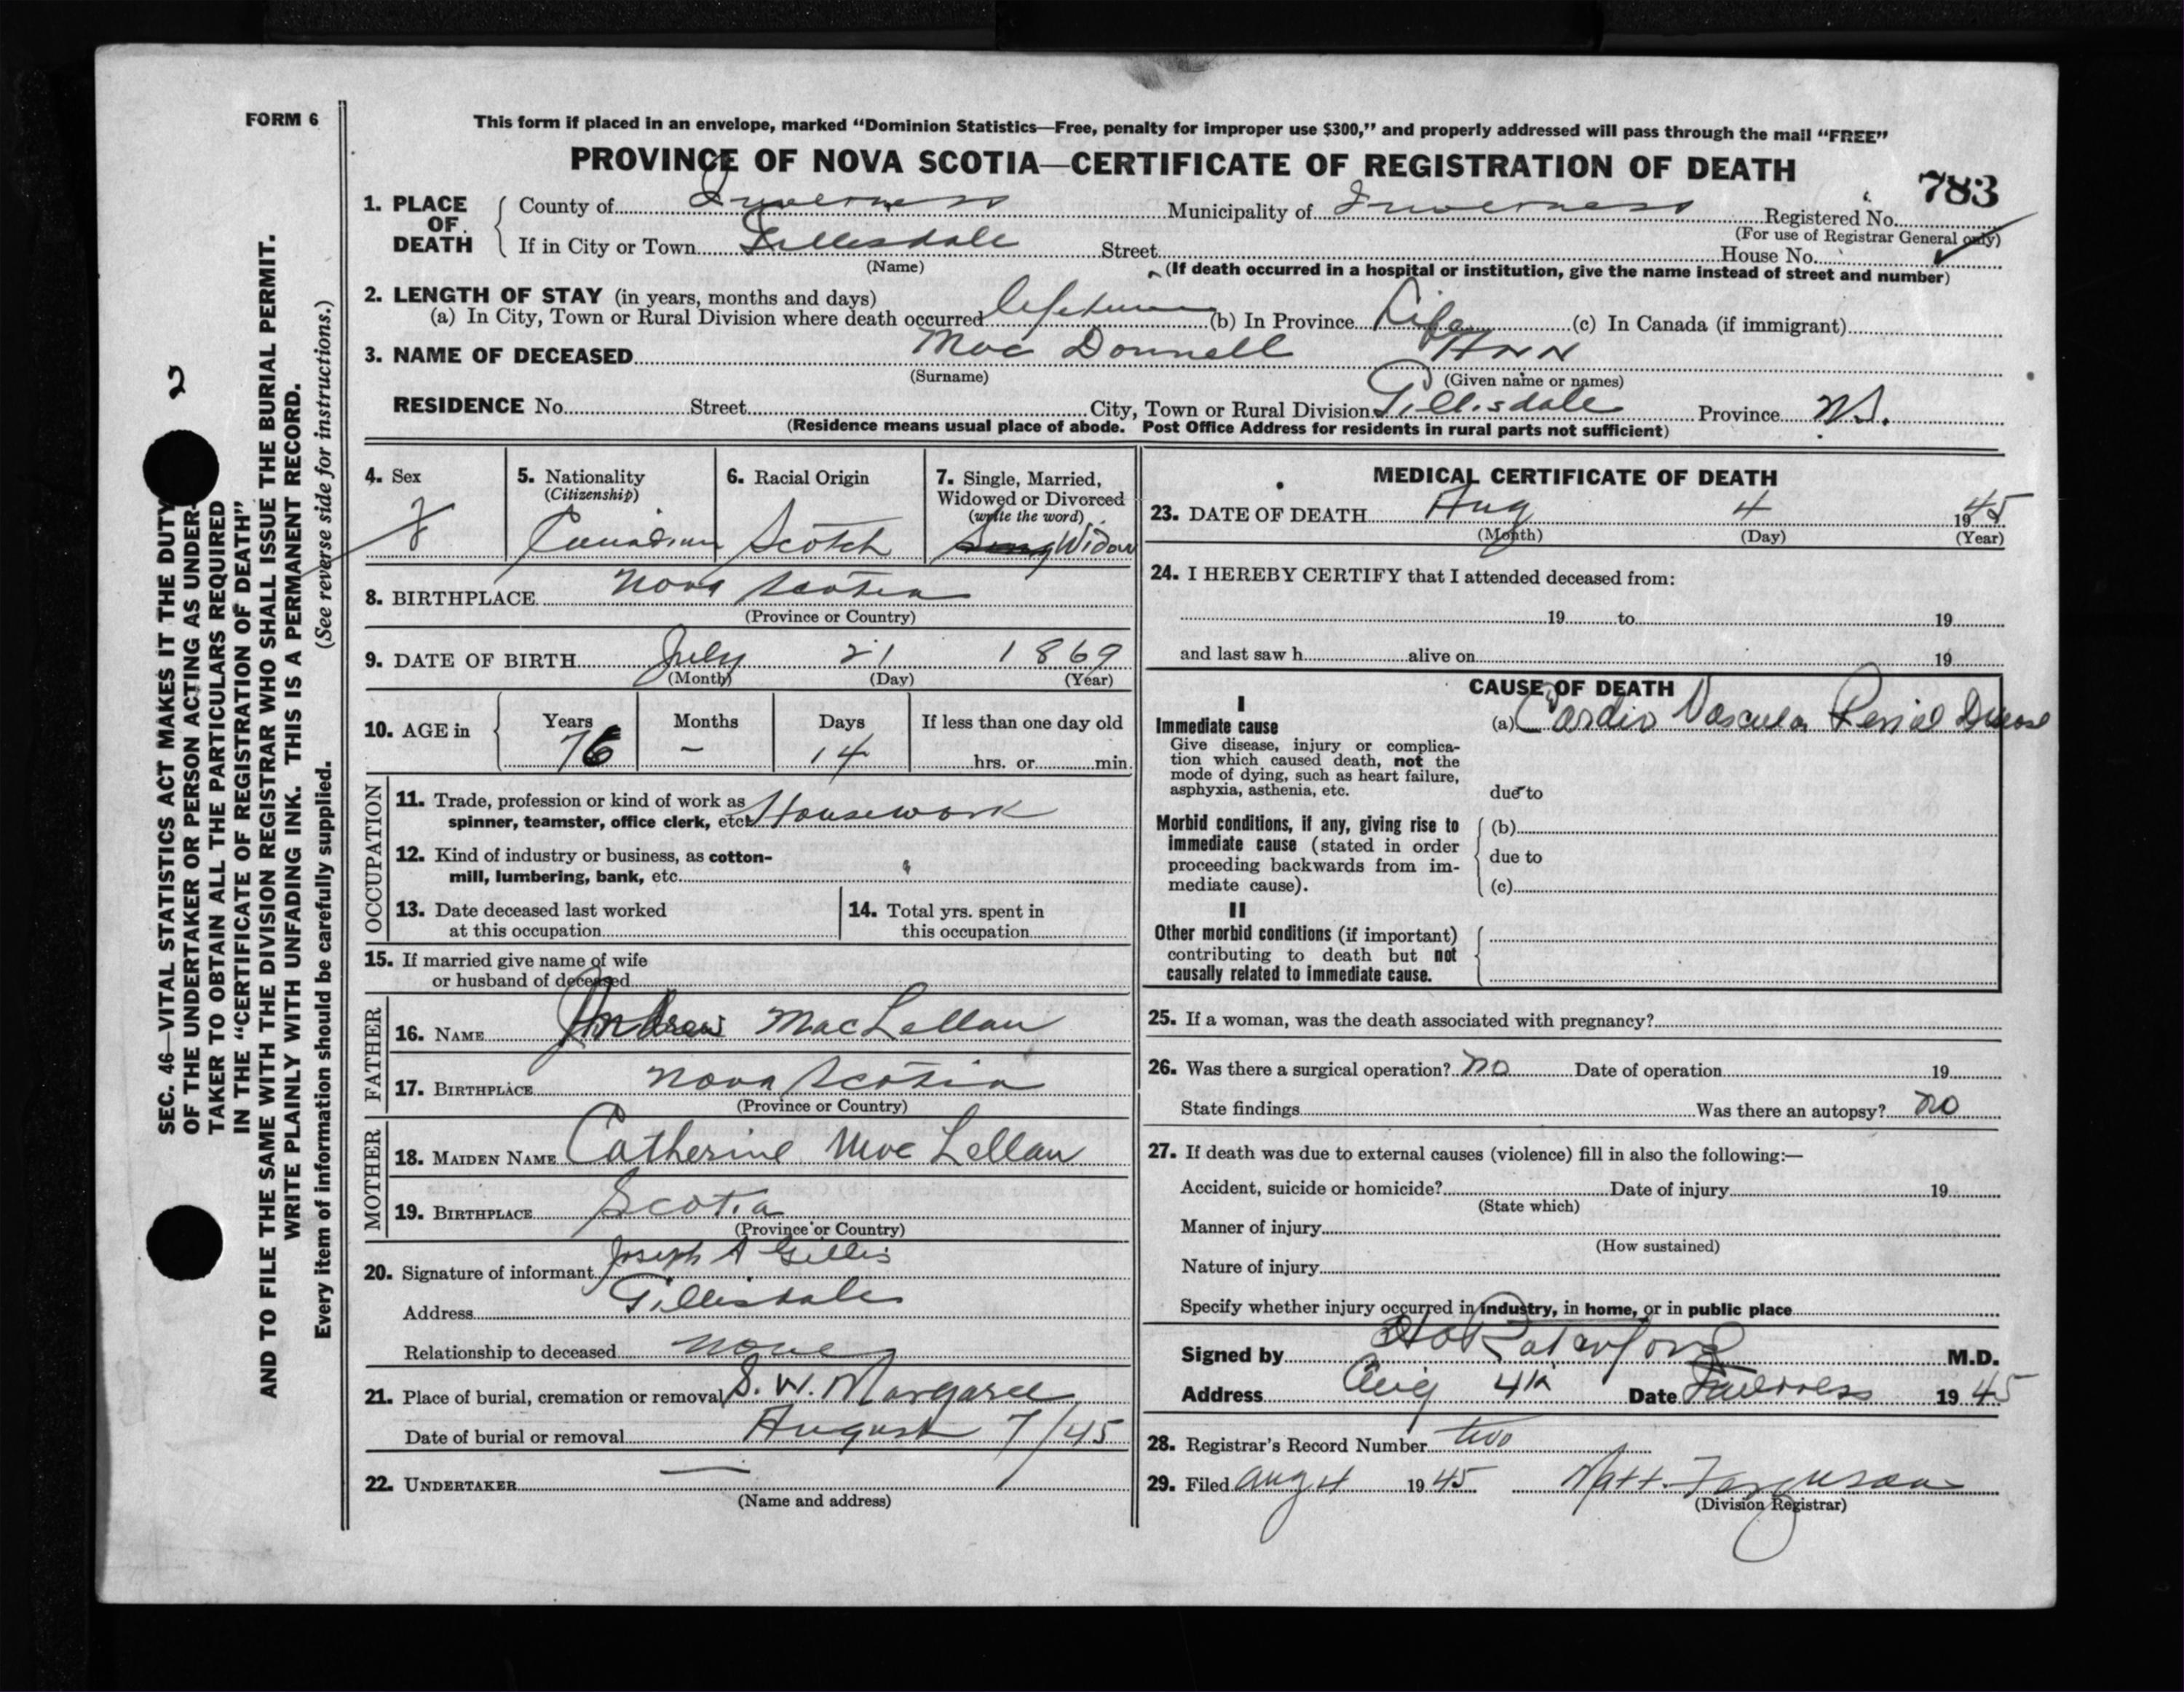 FORM 6
This form if placed in an envelope, marked "Dominion Statistics—Free, penalty for improper use $300," and properly addressed will pass through the mail "FREE"
PROVINCE OF NOVA SCOTIA—CERTIFICATE OF REGISTRATION OF DEATH
783
1. PLACE OF DEATH
County of Inverness Municipality of Inverness Registered No.
(For use of Registrar General only)
If in City or Town Gillisdale Street House No.
(Name) (If death occurred in a hospital or institution, give the name instead of street and number)
2. LENGTH OF STAY (in years, months and days)
(a) In City, Town or Rural Division where death occurred lifetime (b) In Province Life (c) In Canada (if immigrant)
3. NAME OF DECEASED Mac Donnell Ann
(Surname) (Given name or names)
RESIDENCE No. Street City, Town or Rural Division Gillisdale Province N.S.
(Residence means usual place of abode. Post Office Address for residents in rural parts not sufficient)
4. Sex
5. Nationality
(Citizenship)
Canadian
6. Racial Origin
Scotch
7. Single, Married,
Widowed or Divorced
(write the word)
Widow
8. BIRTHPLACE Nova Scotia
(Province or Country)
9. DATE OF BIRTH July 21 1869
(Month) (Day) (Year)
10. AGE in Years Months Days If less than one day old
76 – 14 hrs. or min.
OCCUPATION
11. Trade, profession or kind of work as
spinner, teamster, office clerk, etc. Housework
12. Kind of industry or business, as cotton-
mill, lumbering, bank, etc.
13. Date deceased last worked
at this occupation
14. Total yrs. spent in
this occupation
15. If married give name of wife
or husband of deceased
FATHER
16. NAME Andrew MacLellan
17. BIRTHPLACE Nova Scotia
(Province or Country)
MOTHER
18. MAIDEN NAME Catherine Mac Lellan
19. BIRTHPLACE Scotia
(Province or Country)
20. Signature of informant Joseph A Gillis
Address Gillisdale
Relationship to deceased none
21. Place of burial, cremation or removal S. W. Margaree
Date of burial or removal August 7/45
22. UNDERTAKER —
(Name and address)
MEDICAL CERTIFICATE OF DEATH
23. DATE OF DEATH Aug 4 1945
(Month) (Day) (Year)
24. I HEREBY CERTIFY that I attended deceased from:
19 to 19
and last saw h alive on 19
CAUSE OF DEATH
I
Immediate cause (a) Cardio Vascular Renal Disease
Give disease, injury or complica-
tion which caused death, not the
mode of dying, such as heart failure,
asphyxia, asthenia, etc.
due to
Morbid conditions, if any, giving rise to
immediate cause (stated in order
proceeding backwards from im-
mediate cause).
(b)
due to
(c)
II
Other morbid conditions (if important)
contributing to death but not
causally related to immediate cause.
25. If a woman, was the death associated with pregnancy?
26. Was there a surgical operation? no Date of operation 19
State findings Was there an autopsy? no
27. If death was due to external causes (violence) fill in also the following:—
Accident, suicide or homicide? Date of injury 19
(State which)
Manner of injury
(How sustained)
Nature of injury
Specify whether injury occurred in industry, in home, or in public place
Signed by M.D.
Address Aug 4th Date Inverness 1945
28. Registrar's Record Number two
29. Filed Aug 4 1945 Matt. Ferguson
(Division Registrar)
2
SEC. 46—VITAL STATISTICS ACT MAKES IT THE DUTY
OF THE UNDERTAKER OR PERSON ACTING AS UNDER-
TAKER TO OBTAIN ALL THE PARTICULARS REQUIRED
IN THE "CERTIFICATE OF REGISTRATION OF DEATH"
AND TO FILE THE SAME WITH THE DIVISION REGISTRAR WHO SHALL ISSUE THE BURIAL PERMIT.
WRITE PLAINLY WITH UNFADING INK. THIS IS A PERMANENT RECORD.
Every item of information should be carefully supplied. (See reverse side for instructions.)